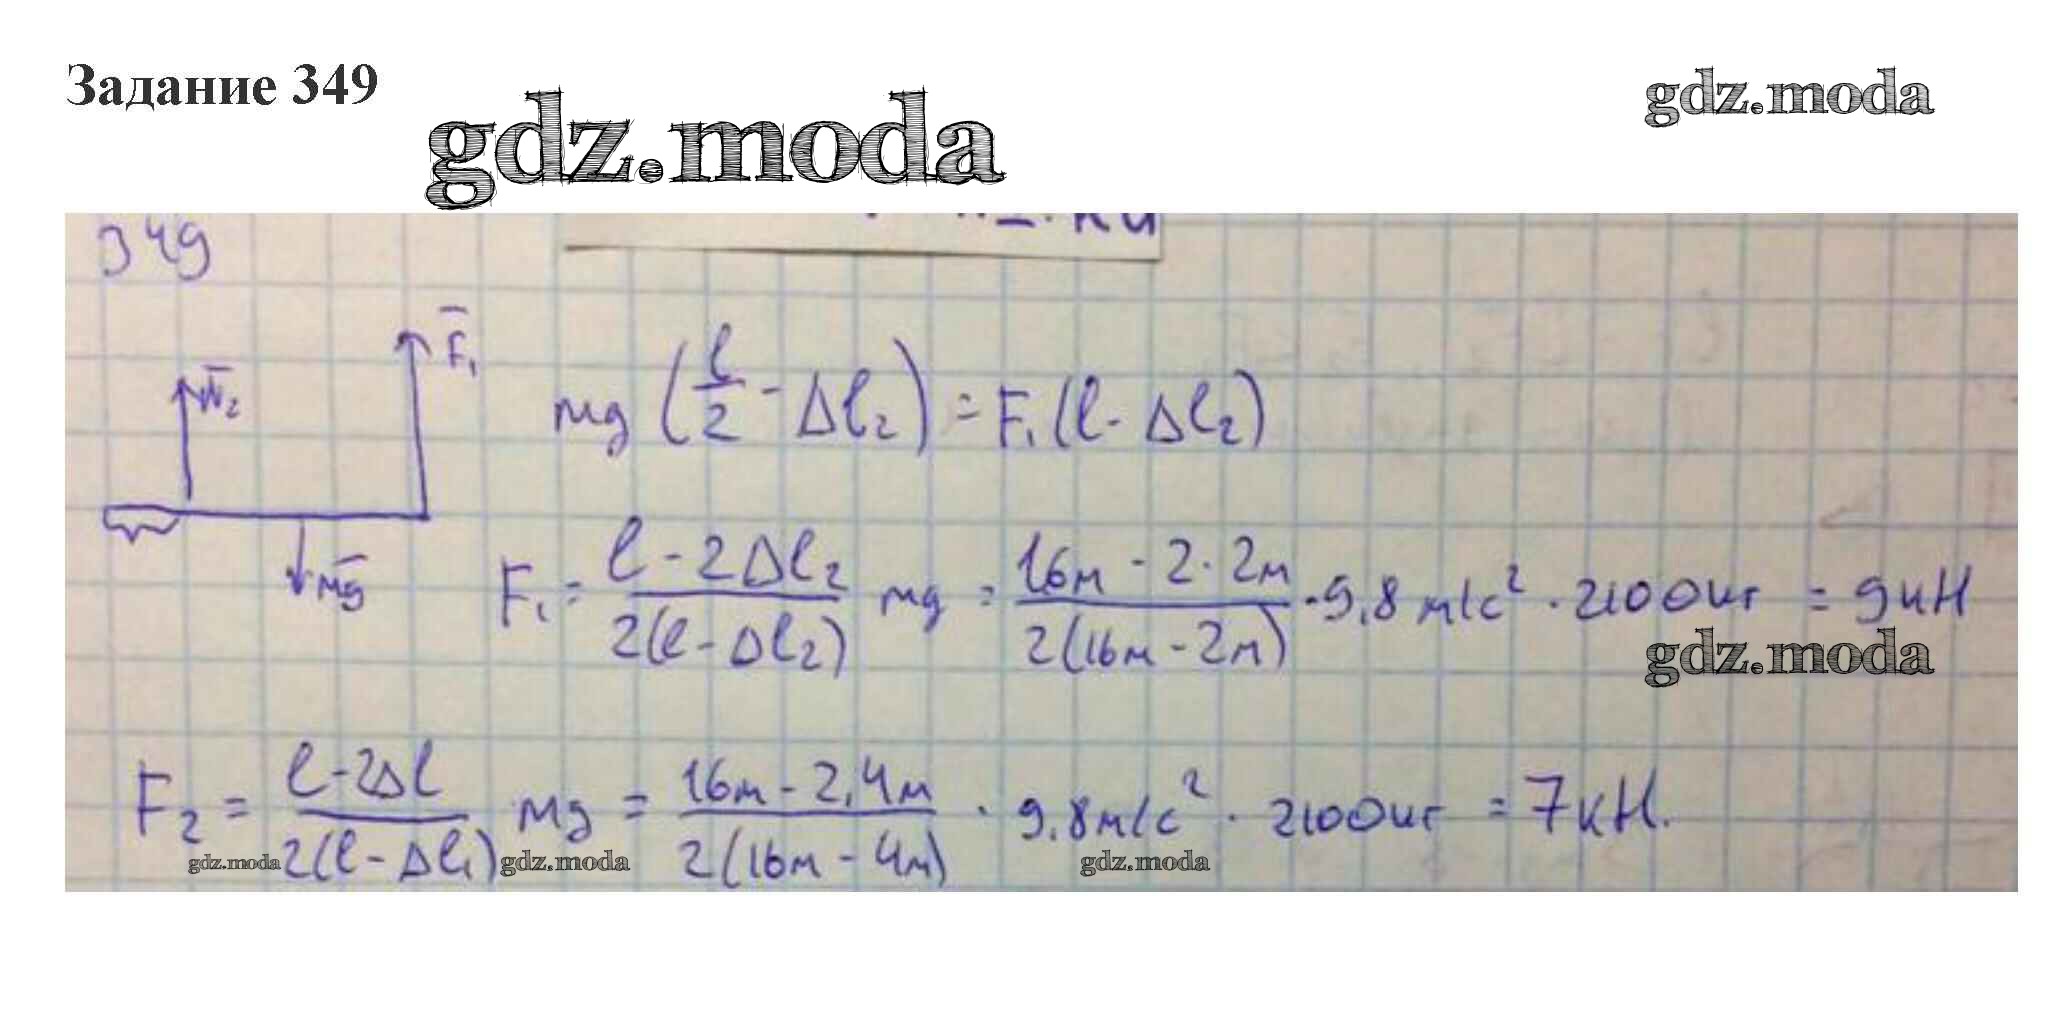 Задание 349
gdz.moda
gdz.moda
349
F₁
N₂
mg
mg (l/2 - Δl₂) = F₁(l - Δl₂)
F₁ = (l - 2Δl₂)/(2(l - Δl₂)) mg = (16м - 2·2м)/(2(16м - 2м)) · 9,8 м/с² · 2100кг = 9кН
gdz.moda
F₂ = (l - 2Δl)/(2(l - Δl₁)) mg = (16м - 2,4м)/(2(16м - 4м)) · 9,8м/с² · 2100кг = 7кН.
gdz.moda
gdz.moda
gdz.moda